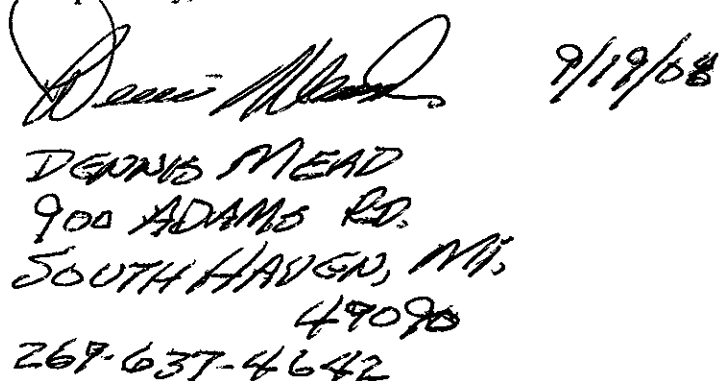 Dennis Mead 9/19/08
DENNIS MEAD
900 ADAMS RD.
SOUTH HAVEN, MI,
49090
269-637-4642